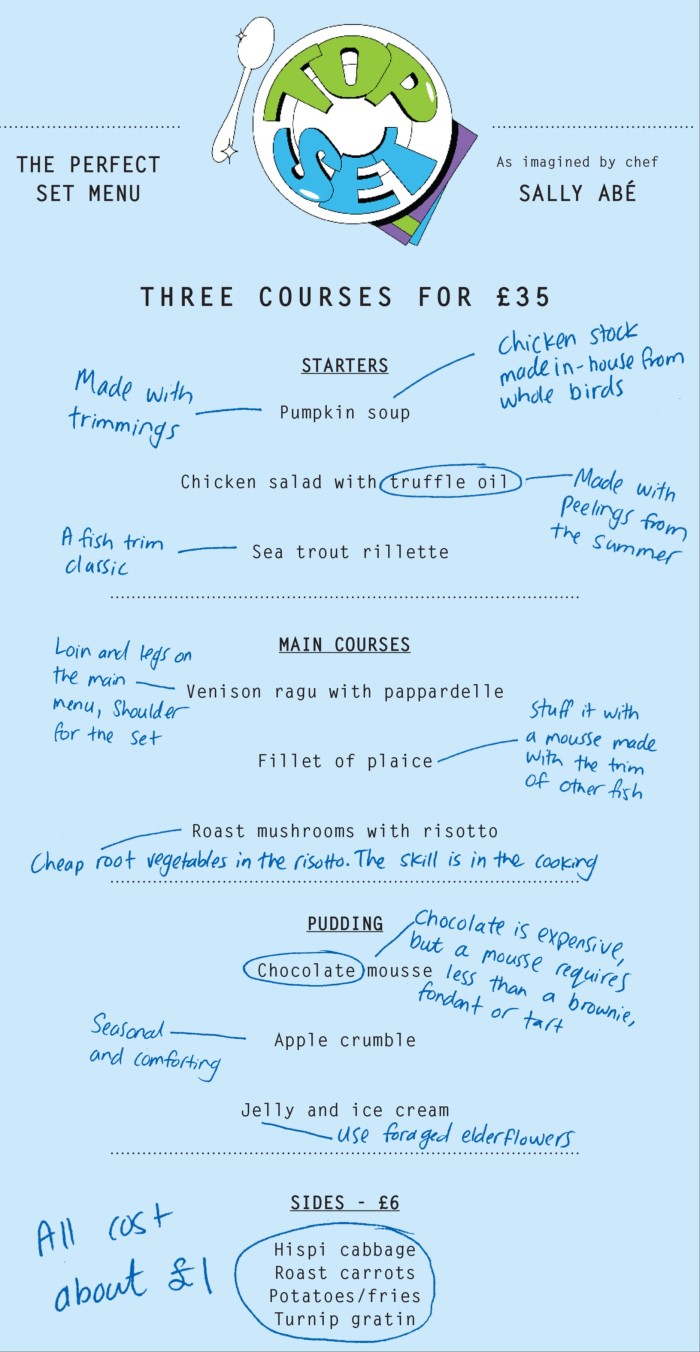 TOP
SET
THE PERFECT
SET MENU
As imagined by chef
SALLY ABÉ
THREE COURSES FOR £35
STARTERS
Chicken stock
made in-house from
whole birds
Made with
trimmings
Pumpkin soup
Chicken salad with truffle oil
Made with
peelings from
the summer
A fish trim
classic
Sea trout rillette
MAIN COURSES
Loin and legs on
the main
menu, shoulder
for the set
Venison ragu with pappardelle
Stuff it with
a mousse made
with the trim
of other fish
Fillet of plaice
Roast mushrooms with risotto
Cheap root vegetables in the risotto. The skill is in the cooking
PUDDING
Chocolate is expensive,
but a mousse requires
less than a brownie,
fondant or tart
Chocolate mousse
Seasonal
and comforting
Apple crumble
Jelly and ice cream
Use foraged elderflowers
SIDES - £6
All cost
about £1
Hispi cabbage
Roast carrots
Potatoes/fries
Turnip gratin